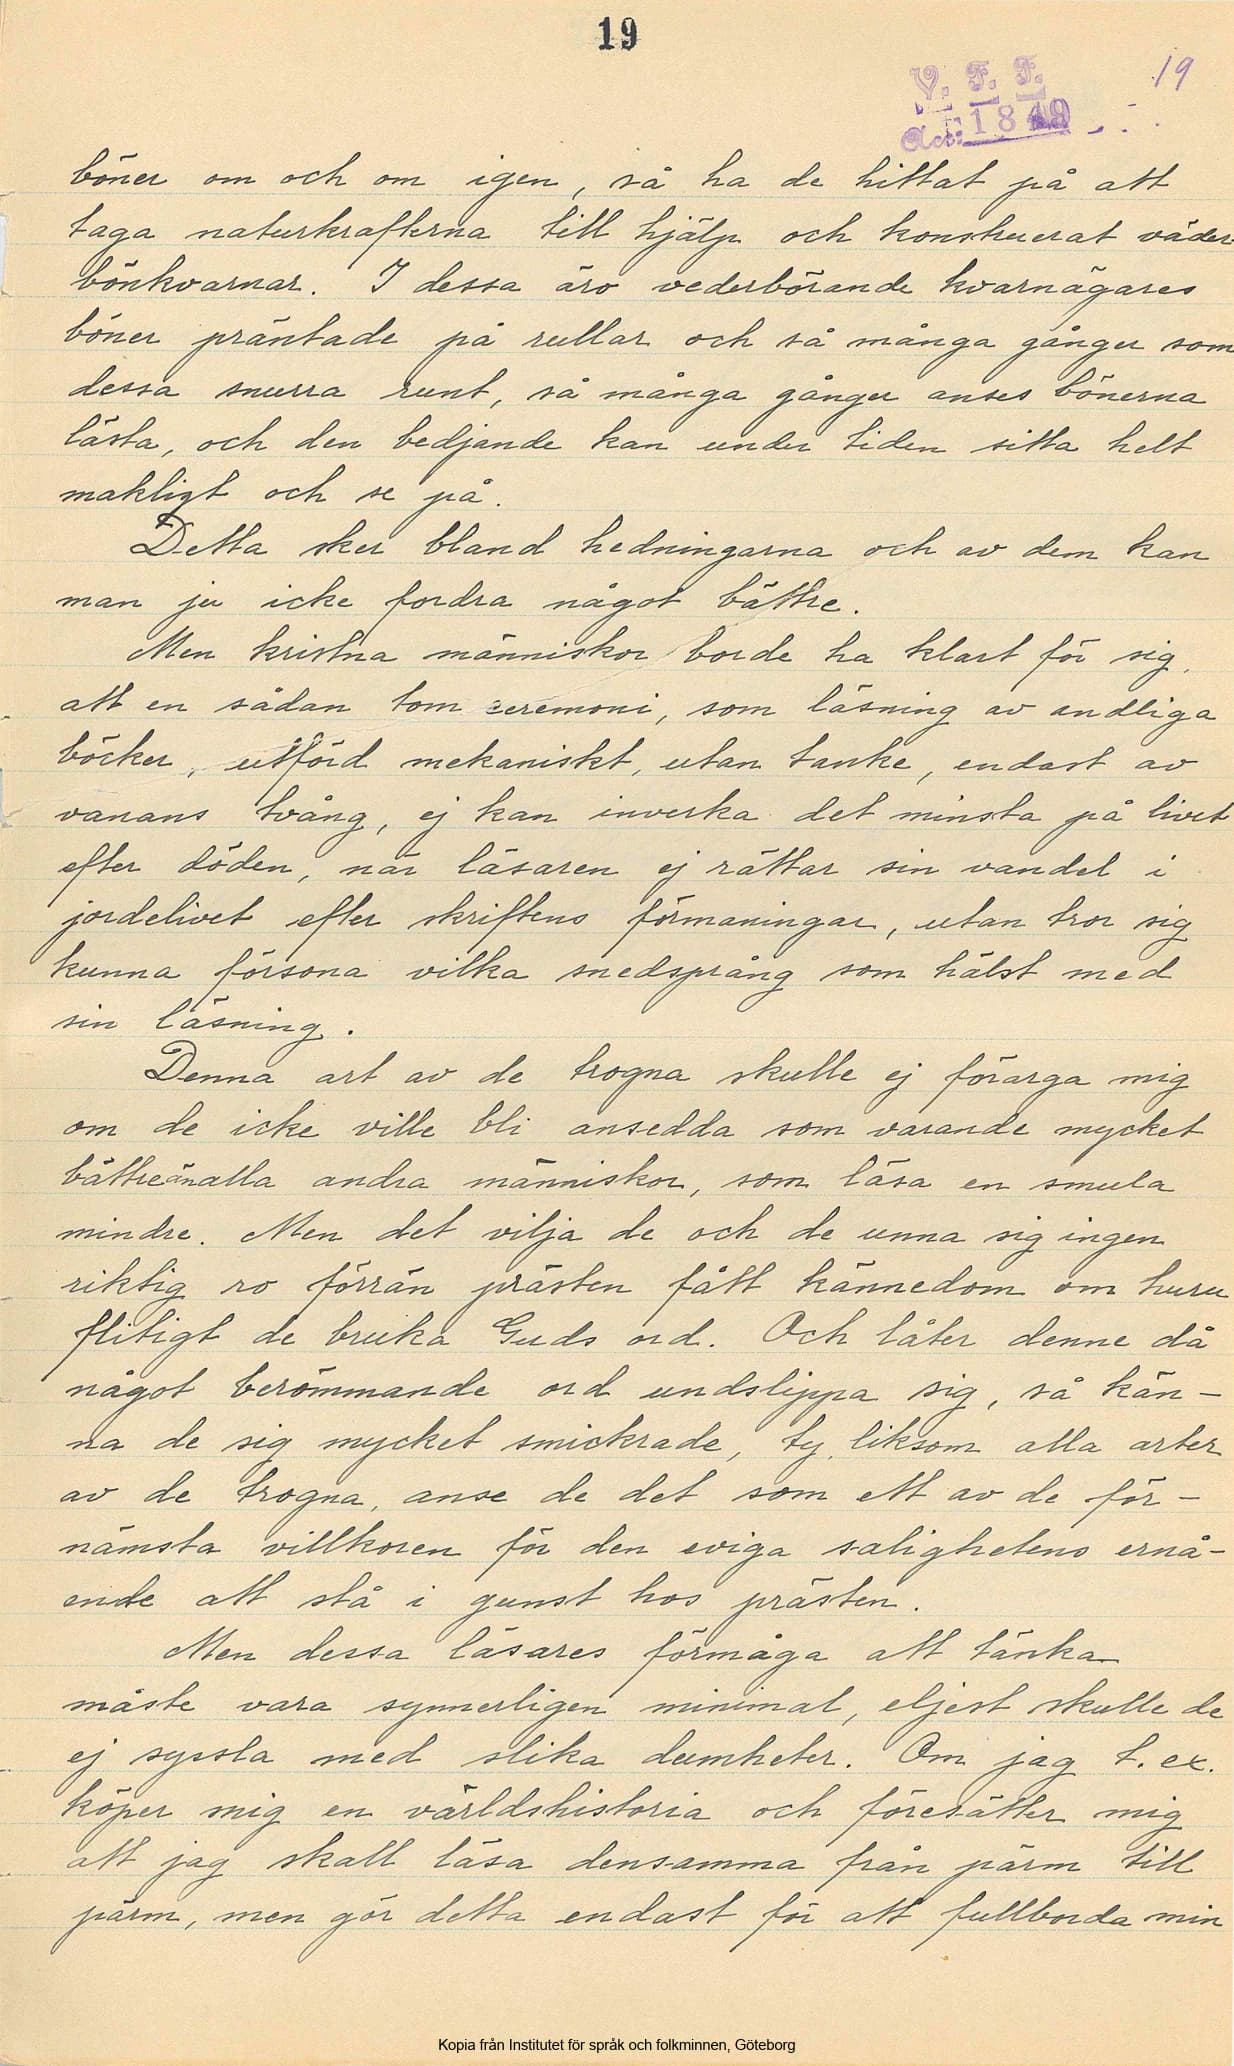 19
V. F. F.
19
Acc: 1849
böner om och om igen, så ha de hittat på att
taga naturkrafterna till hjälp och konstruerat väder-
bönkvarnar. I dessa äro vederbörande kvarnägares
böner präntade på rullar och så många gånger som
dessa snurra runt, så många gånger anses bönerna
lästa, och den bedjande kan under tiden sitta helt
makligt och se på.
Detta sker bland hedningarna och av dem kan
man ju icke fordra något bättre.
Men kristna människor borde ha klart för sig,
att en sådan tom ceremoni, som läsning av andliga
böcker, utförd mekaniskt, utan tanke, endast av
vanans tvång, ej kan inverka det minsta på livet
efter döden, när läsaren ej rättar sin vandel i
jordelivet efter skriftens förmaningar, utan tror sig
kunna försona vilka snedsprång som hälst med
sin läsning.
Denna art av de trogna skulle ej förarga mig
om de icke ville bli ansedda som varande mycket
bättre än alla andra människor, som läsa en smula
mindre. Men det vilja de och de unna sig ingen
riktig ro förrän prästen fått kännedom om huru
flitigt de bruka Guds ord. Och låter denne då
något berömmande ord undslippa sig, så kän-
na de sig mycket smickrade, ty, liksom alla arter
av de trogna, anse de det som ett av de för-
nämsta villkoren för den eviga salighetens ernå-
ende att stå i gunst hos prästen.
Men dessa läsares förmåga att tänka
måste vara synnerligen minimal, eljest skulle de
ej syssla med slika dumheter. Om jag t. ex.
köper mig en världshistoria och föresätter mig
att jag skall läsa densamma från pärm till
pärm, men gör detta endast för att fullborda min
Kopia från Institutet för språk och folkminnen, Göteborg